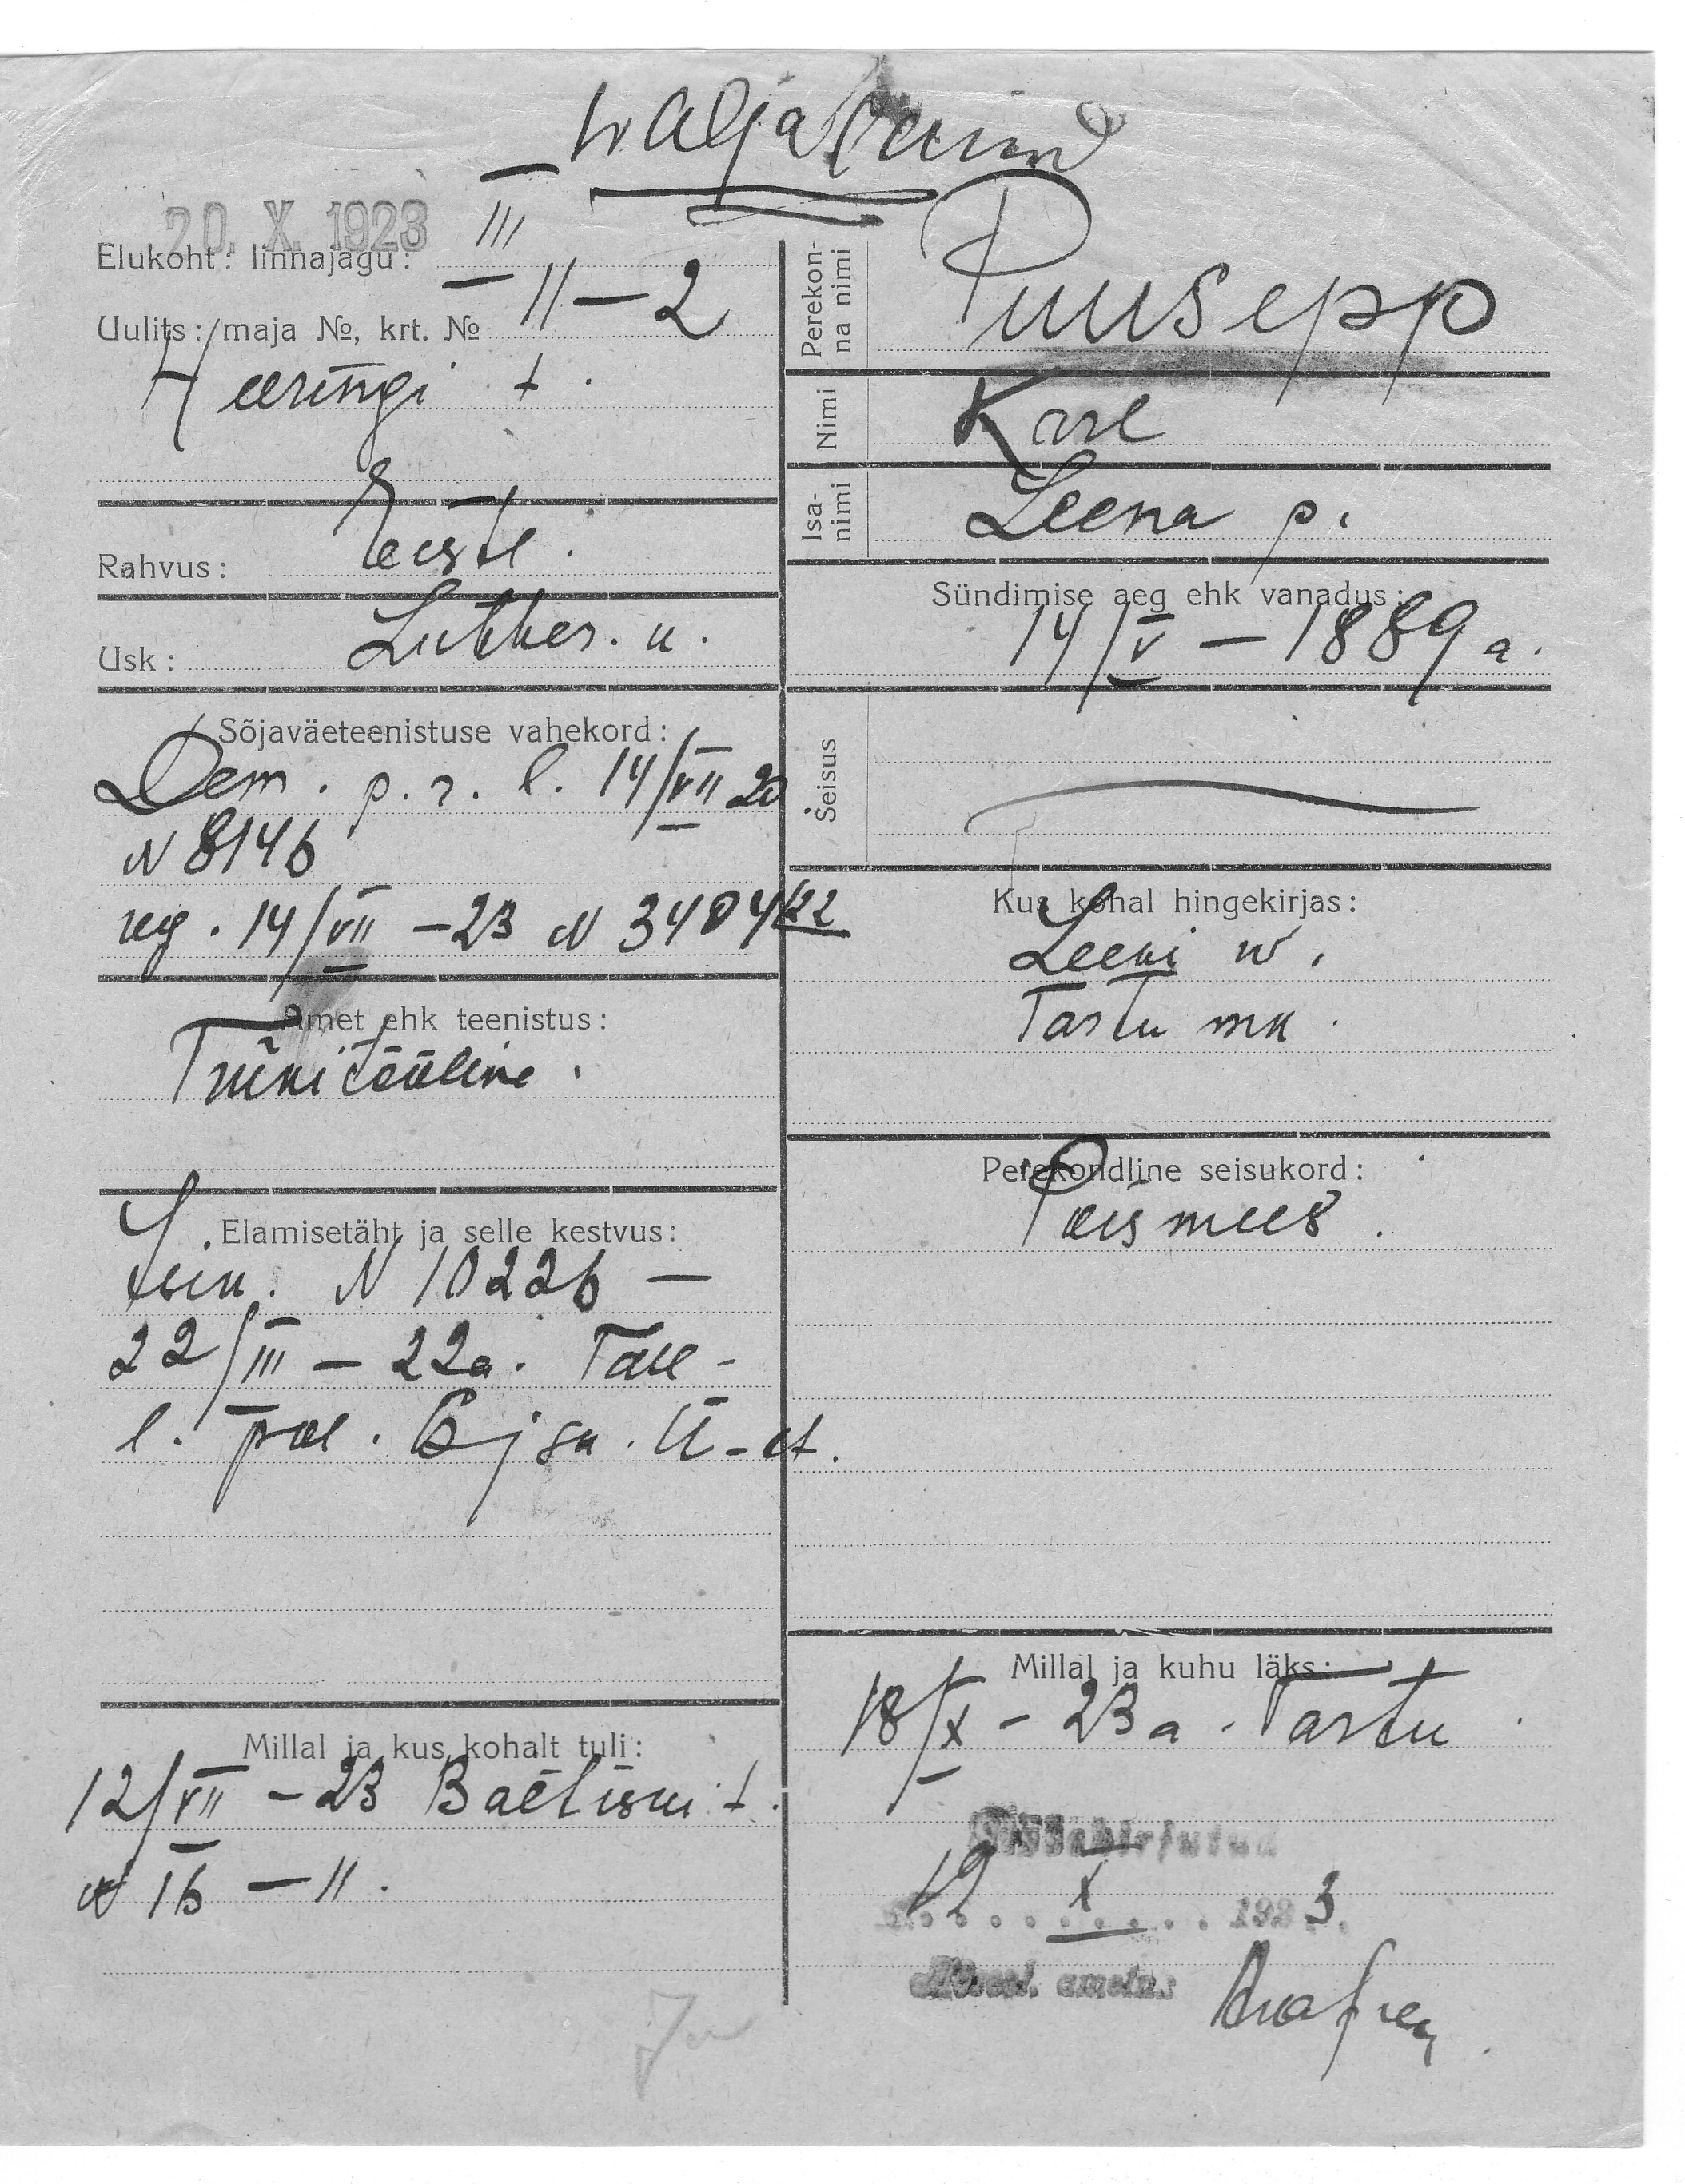 Waljaläinud
20. X. 1923
III
Elukoht: linnajagu:
Uulits: maja №, krt. № 11 – 2
Heeringi t.
Rahvus: Eesti.
Usk: Luther. u.
Sõjaväeteenistuse vahekord:
Dem. p. r. l. 14/VII 20
N 8146
reg. 14/VII – 23 N 3404/22
Amet ehk teenistus:
Trükitööline.
Elamisetäht ja selle kestvus:
N 10226 –
22/III – 22a. Tall-
l. pol. 6 jsk.
Millal ja kus kohalt tuli:
12/VII – 23 Baltiski t.
N 16 – 11.
Perekon-
na nimi
Puusepp
Nimi Karl
Isa-
nimi
Leena p.
Sündimise aeg ehk vanadus:
14/V – 1889 a.
Seisus
Kus kohal hingekirjas:
Leevi w.
Tartu mk.
Perekondline seisukord:
Poismees.
Millal ja kuhu läks:
18/X – 23 a. Tartu
19 X 1923.